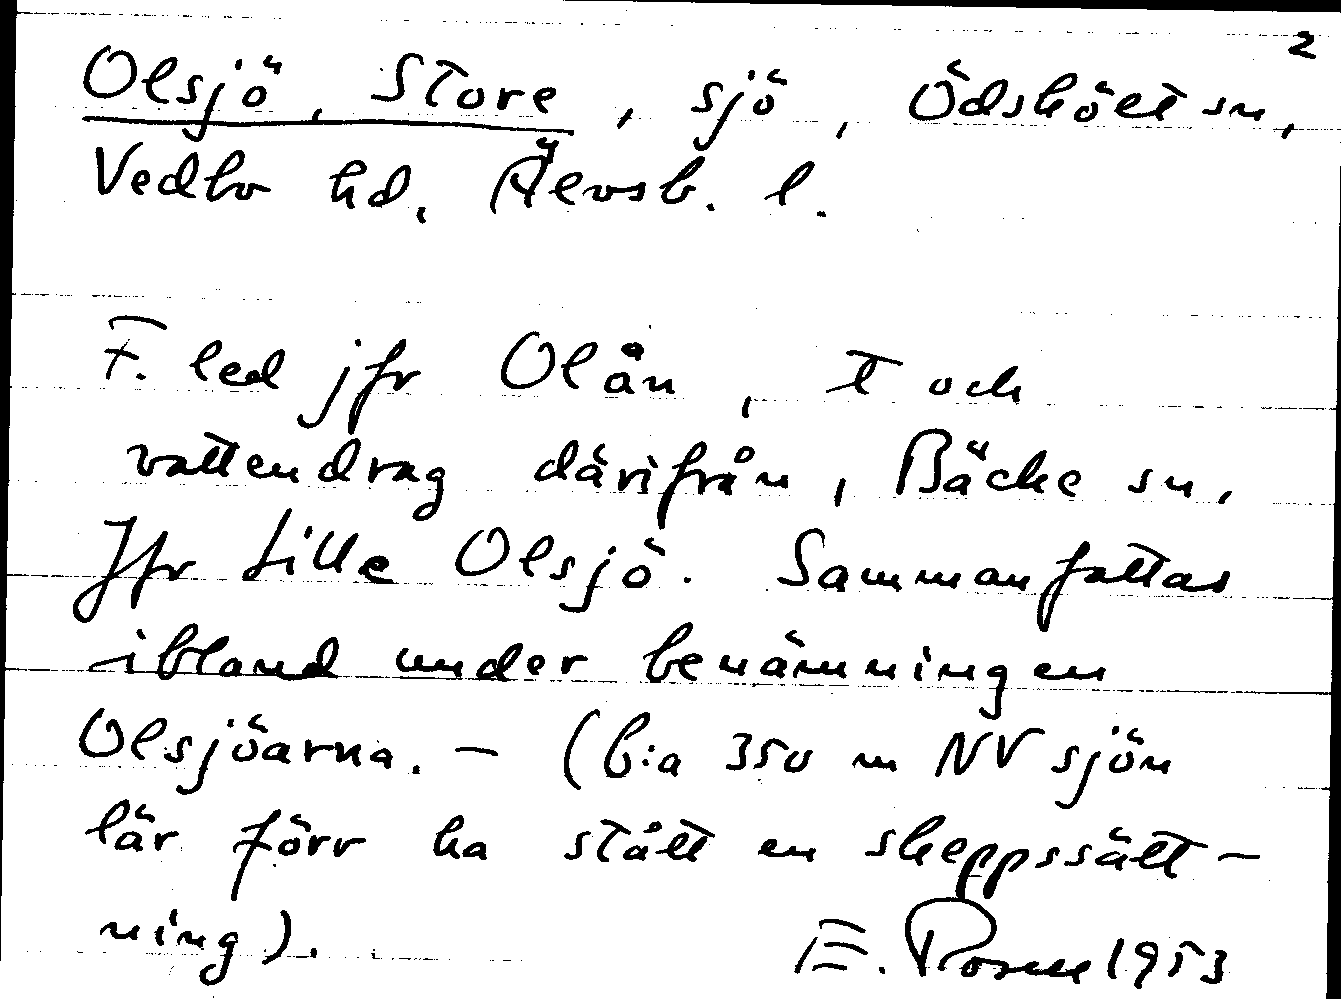 2
Olsjö, Store, sjö, Ödskölt sn,
Vedbo hd. Älvsb. l.
F. led jfr Olån, t och
vattendrag därifrån, Bäcke sn.
Jfr Lille Olsjö. Sammanfattas
ibland under benämningen
Olsjöarna. – (C:a 350 m NV sjön
lär förr ha stått en skeppssätt-
ning).
E. Rosell 1953